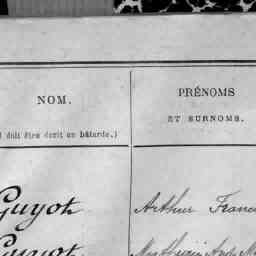 NOM.
doit être écrit en bâtarde.)
PRÉNOMS
ET SURNOMS.
Guyot Arthur Franc
Guyot